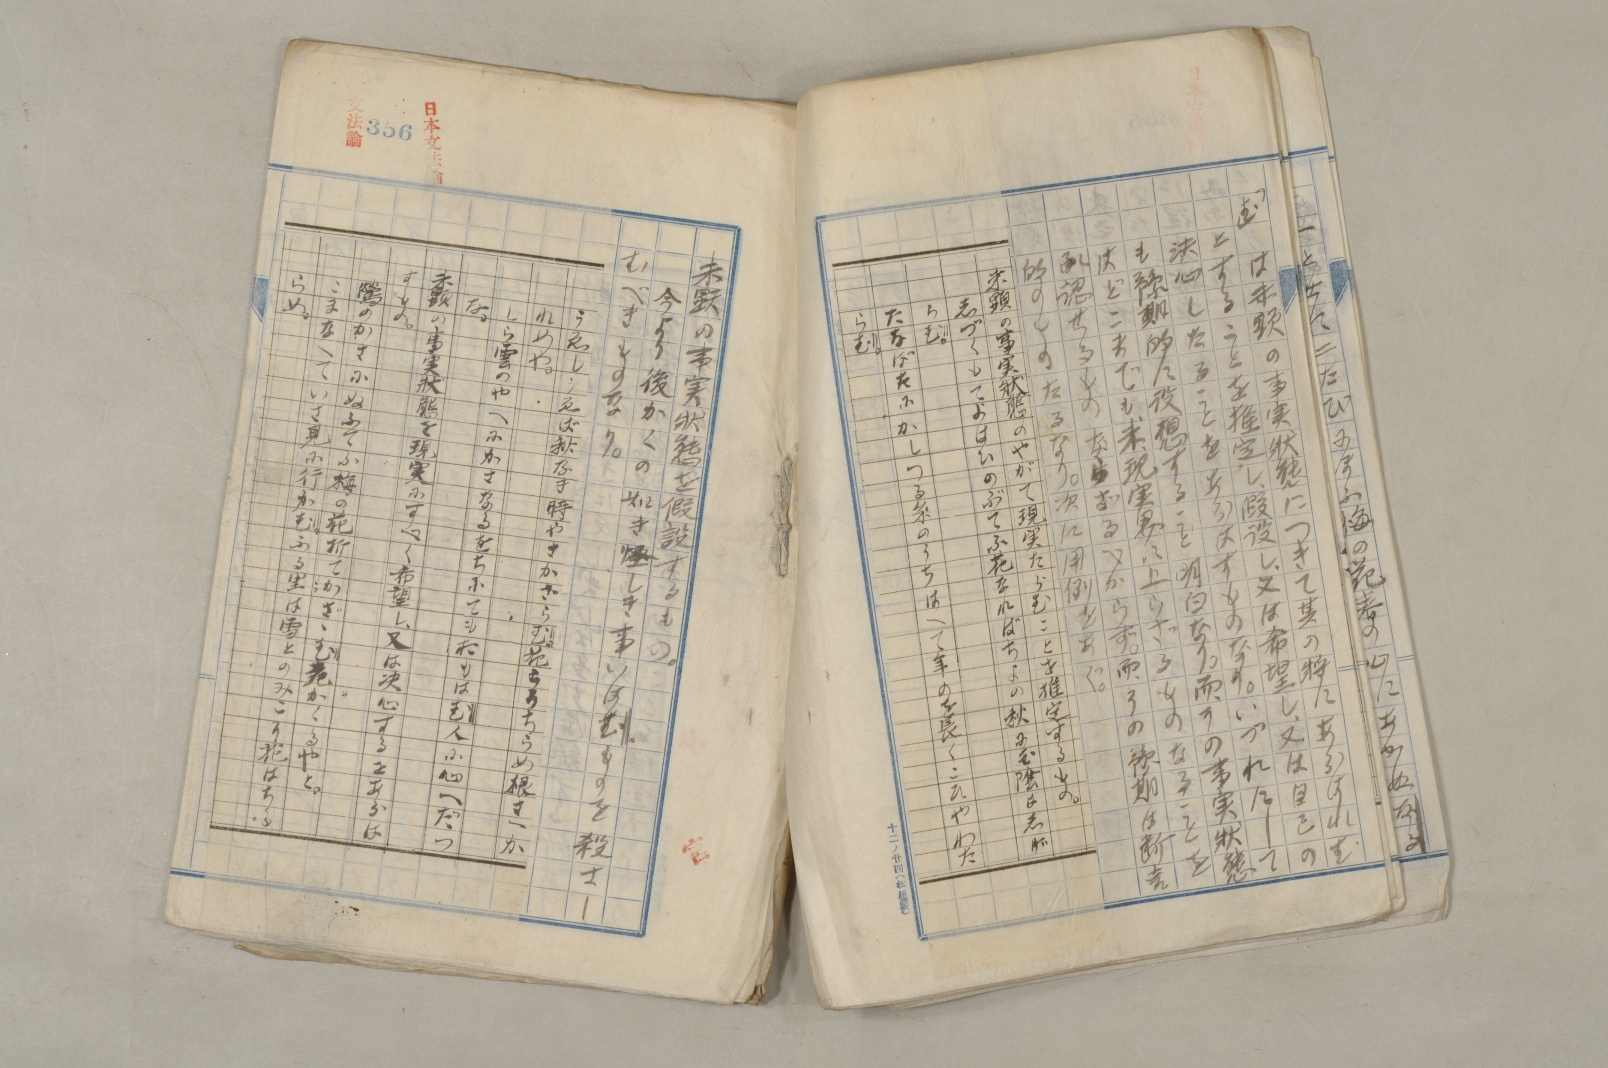 一とせに二たびにほふ梅の花春の心にあかぬなるべ
「む」は未顕の事実状態につきて其の将にあらはれむ
とすることを推定し、假設し、又は希望し、又は自己の
決心したることをあらはすものなり。いづれにして
も豫期的に設想すること明白なり。而、その事実状態
はどこまでも、未現実界に上らざるものなることを
承認せるものならざるべからず。而、その豫期は断言
的のものたるなり。次に用例をあぐ。
未顕の事実状態のやがて現実たらむことを推定するもの。
しづくもてよはひのぶてふ花なればちよの秋に
らむ。
たなばたにかしつる糸のうちはへて年のを長くこひやわた
らむ。
十二ノ廿四(松屋製)
日本文法論
356
文法論
未顕の事実状態を假設するもの。
今より後かくの如き怪しき事いはむものを殺す
むべきものなり。
うゑしうゑば秋なき時やさかざらむ花こそちらめ根さへか
れめや。
しら雲のやへにかさなるをちにてもおもはむ人に心へだつ
な。
未顕の事実状態を現実にすべく希望し、又は決心するをあらは
すもの。
鶯のかさにぬふてふ梅の花折てかざゝむ老かくるやと。
こまなへていさ見に行かむふる里は雪とのみこそ花はちる
らめ。